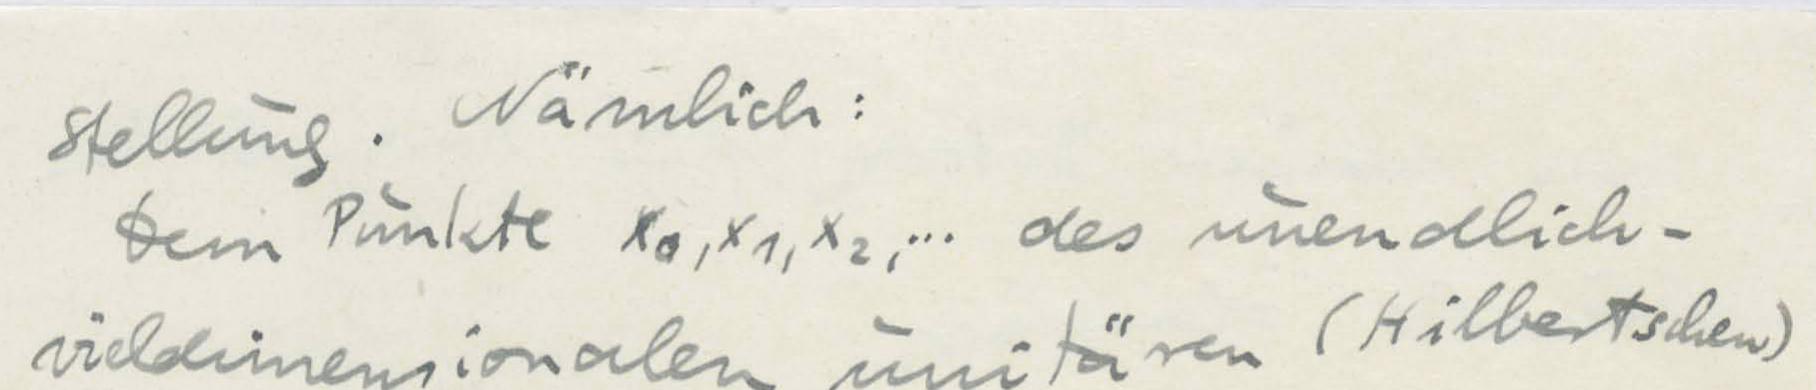 stellung. Nämlich:
Dem Punkte x₀, x₁, x₂, ... des unendlich-
vieldimensionalen unitären (Hilbertschen)